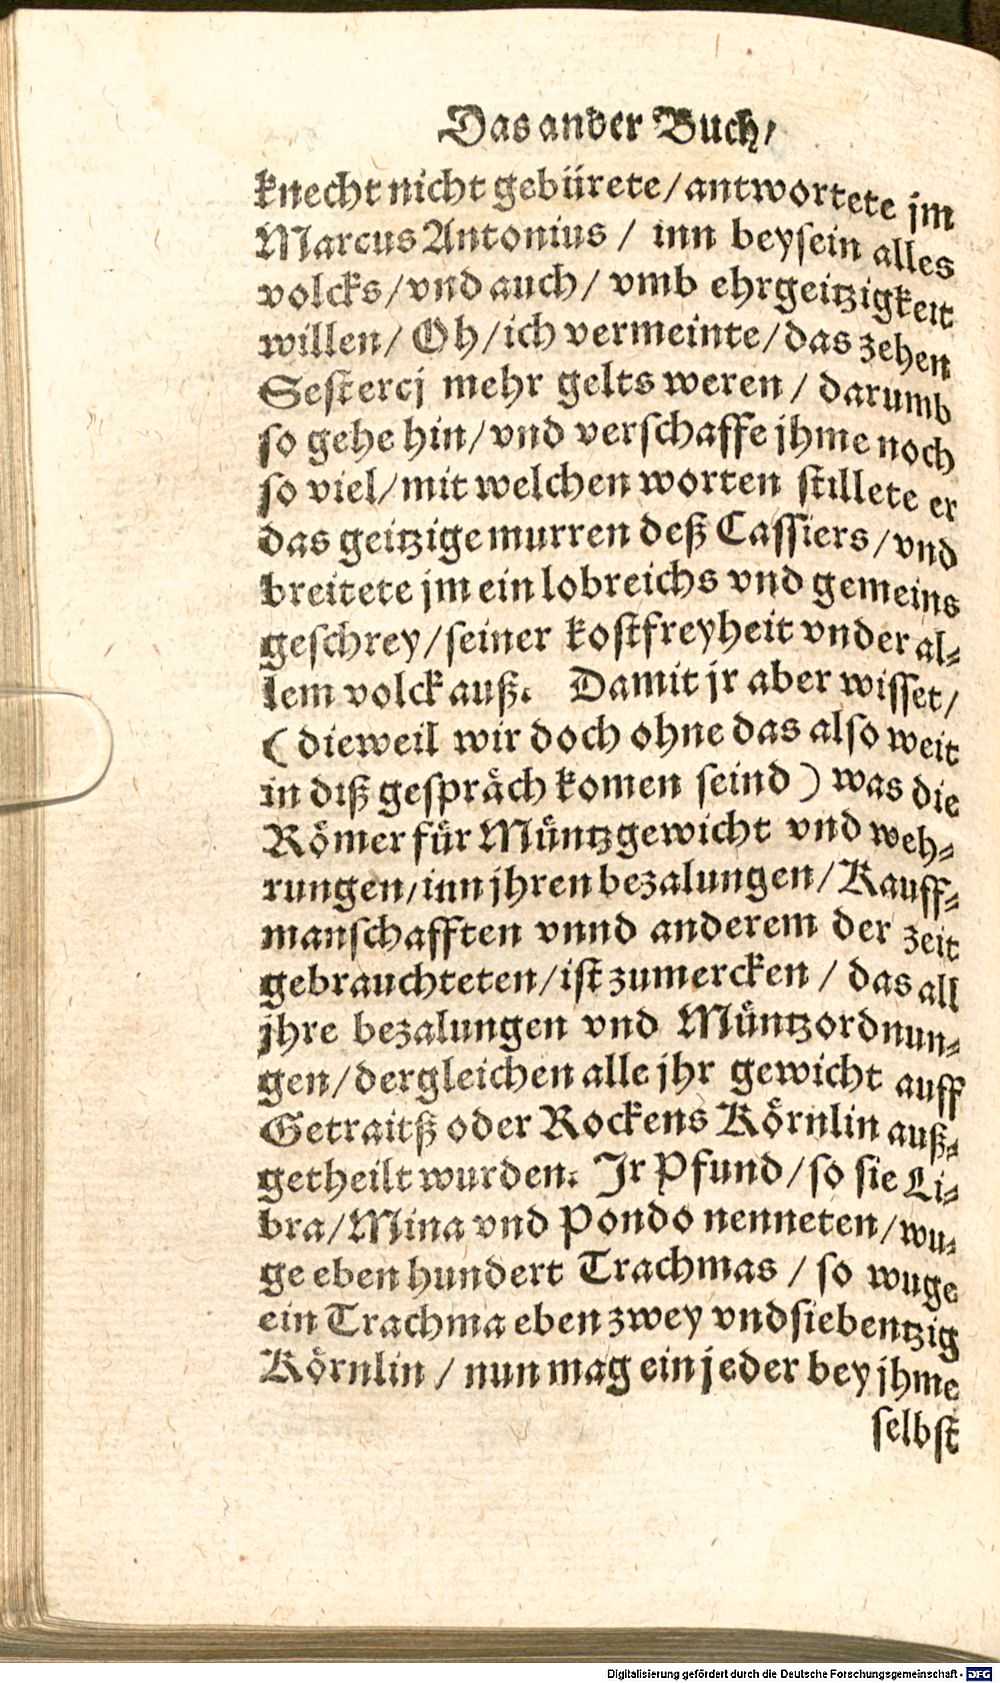 Das ander Buch/
knecht nicht gebürete/antwortete jm
Marcus Antonius / inn beysein alles
volcks/vnd auch/ vmb ehrgeitzigkeit
willen/ Oh/ich vermeinte/das zehen
Sestercj mehr gelts weren / darumb
so gehe hin/vnd verschaffe jhme noch
so viel/mit welchen worten stillete er
das geitzige murren deß Cassiers/vnd
breitete jm ein lobreichs vnd gemeins
geschrey/seiner kostfreyheit vnder al-
lem volck auß. Damit jr aber wisset/
(dieweil wir doch ohne das also weit
in diß gespräch komen seind) was die
Römer für Müntzgewicht vnd weh-
rungen/inn jhren bezalungen/Kauff-
manschafften vnnd anderem der zeit
gebrauchteten/ist zumercken / das all
jhre bezalungen vnd Müntzordnun-
gen/dergleichen alle jhr gewicht auff
Getraitß oder Rockens Körnlin auß-
getheilt wurden. Jr Pfund/so sie Li-
bra/Mina vnd Pondo nenneten/wu-
ge eben hundert Trachmas / so wuge
ein Trachma eben zwey vnd siebentzig
Körnlin / nun mag ein jeder bey jhme
selbst
Digitalisierung gefördert durch die Deutsche Forschungsgemeinschaft - DFG